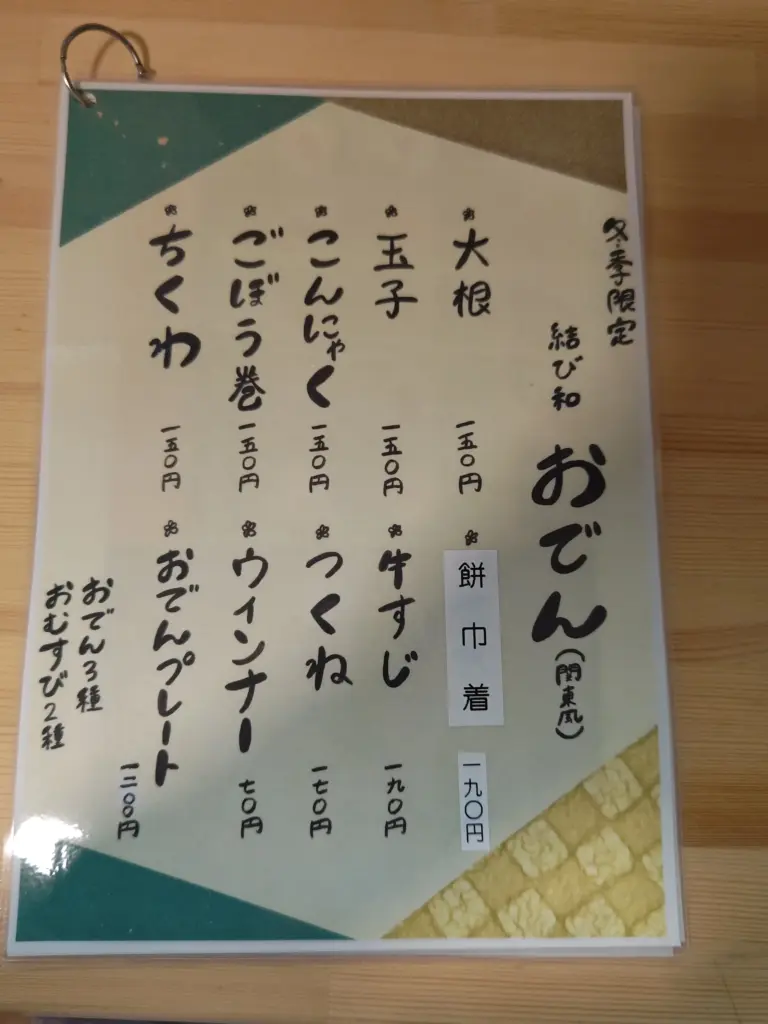 冬季限定
結び和 おでん(関東風)
大根 一五〇円
餅巾着 一九〇円
玉子 一五〇円
牛すじ 一九〇円
こんにゃく 一五〇円
つくね 一七〇円
ごぼう巻 一五〇円
ウィンナー 七〇円
ちくわ 一五〇円
おでんプレート 一二〇〇円
おでん3種
おむすび2種